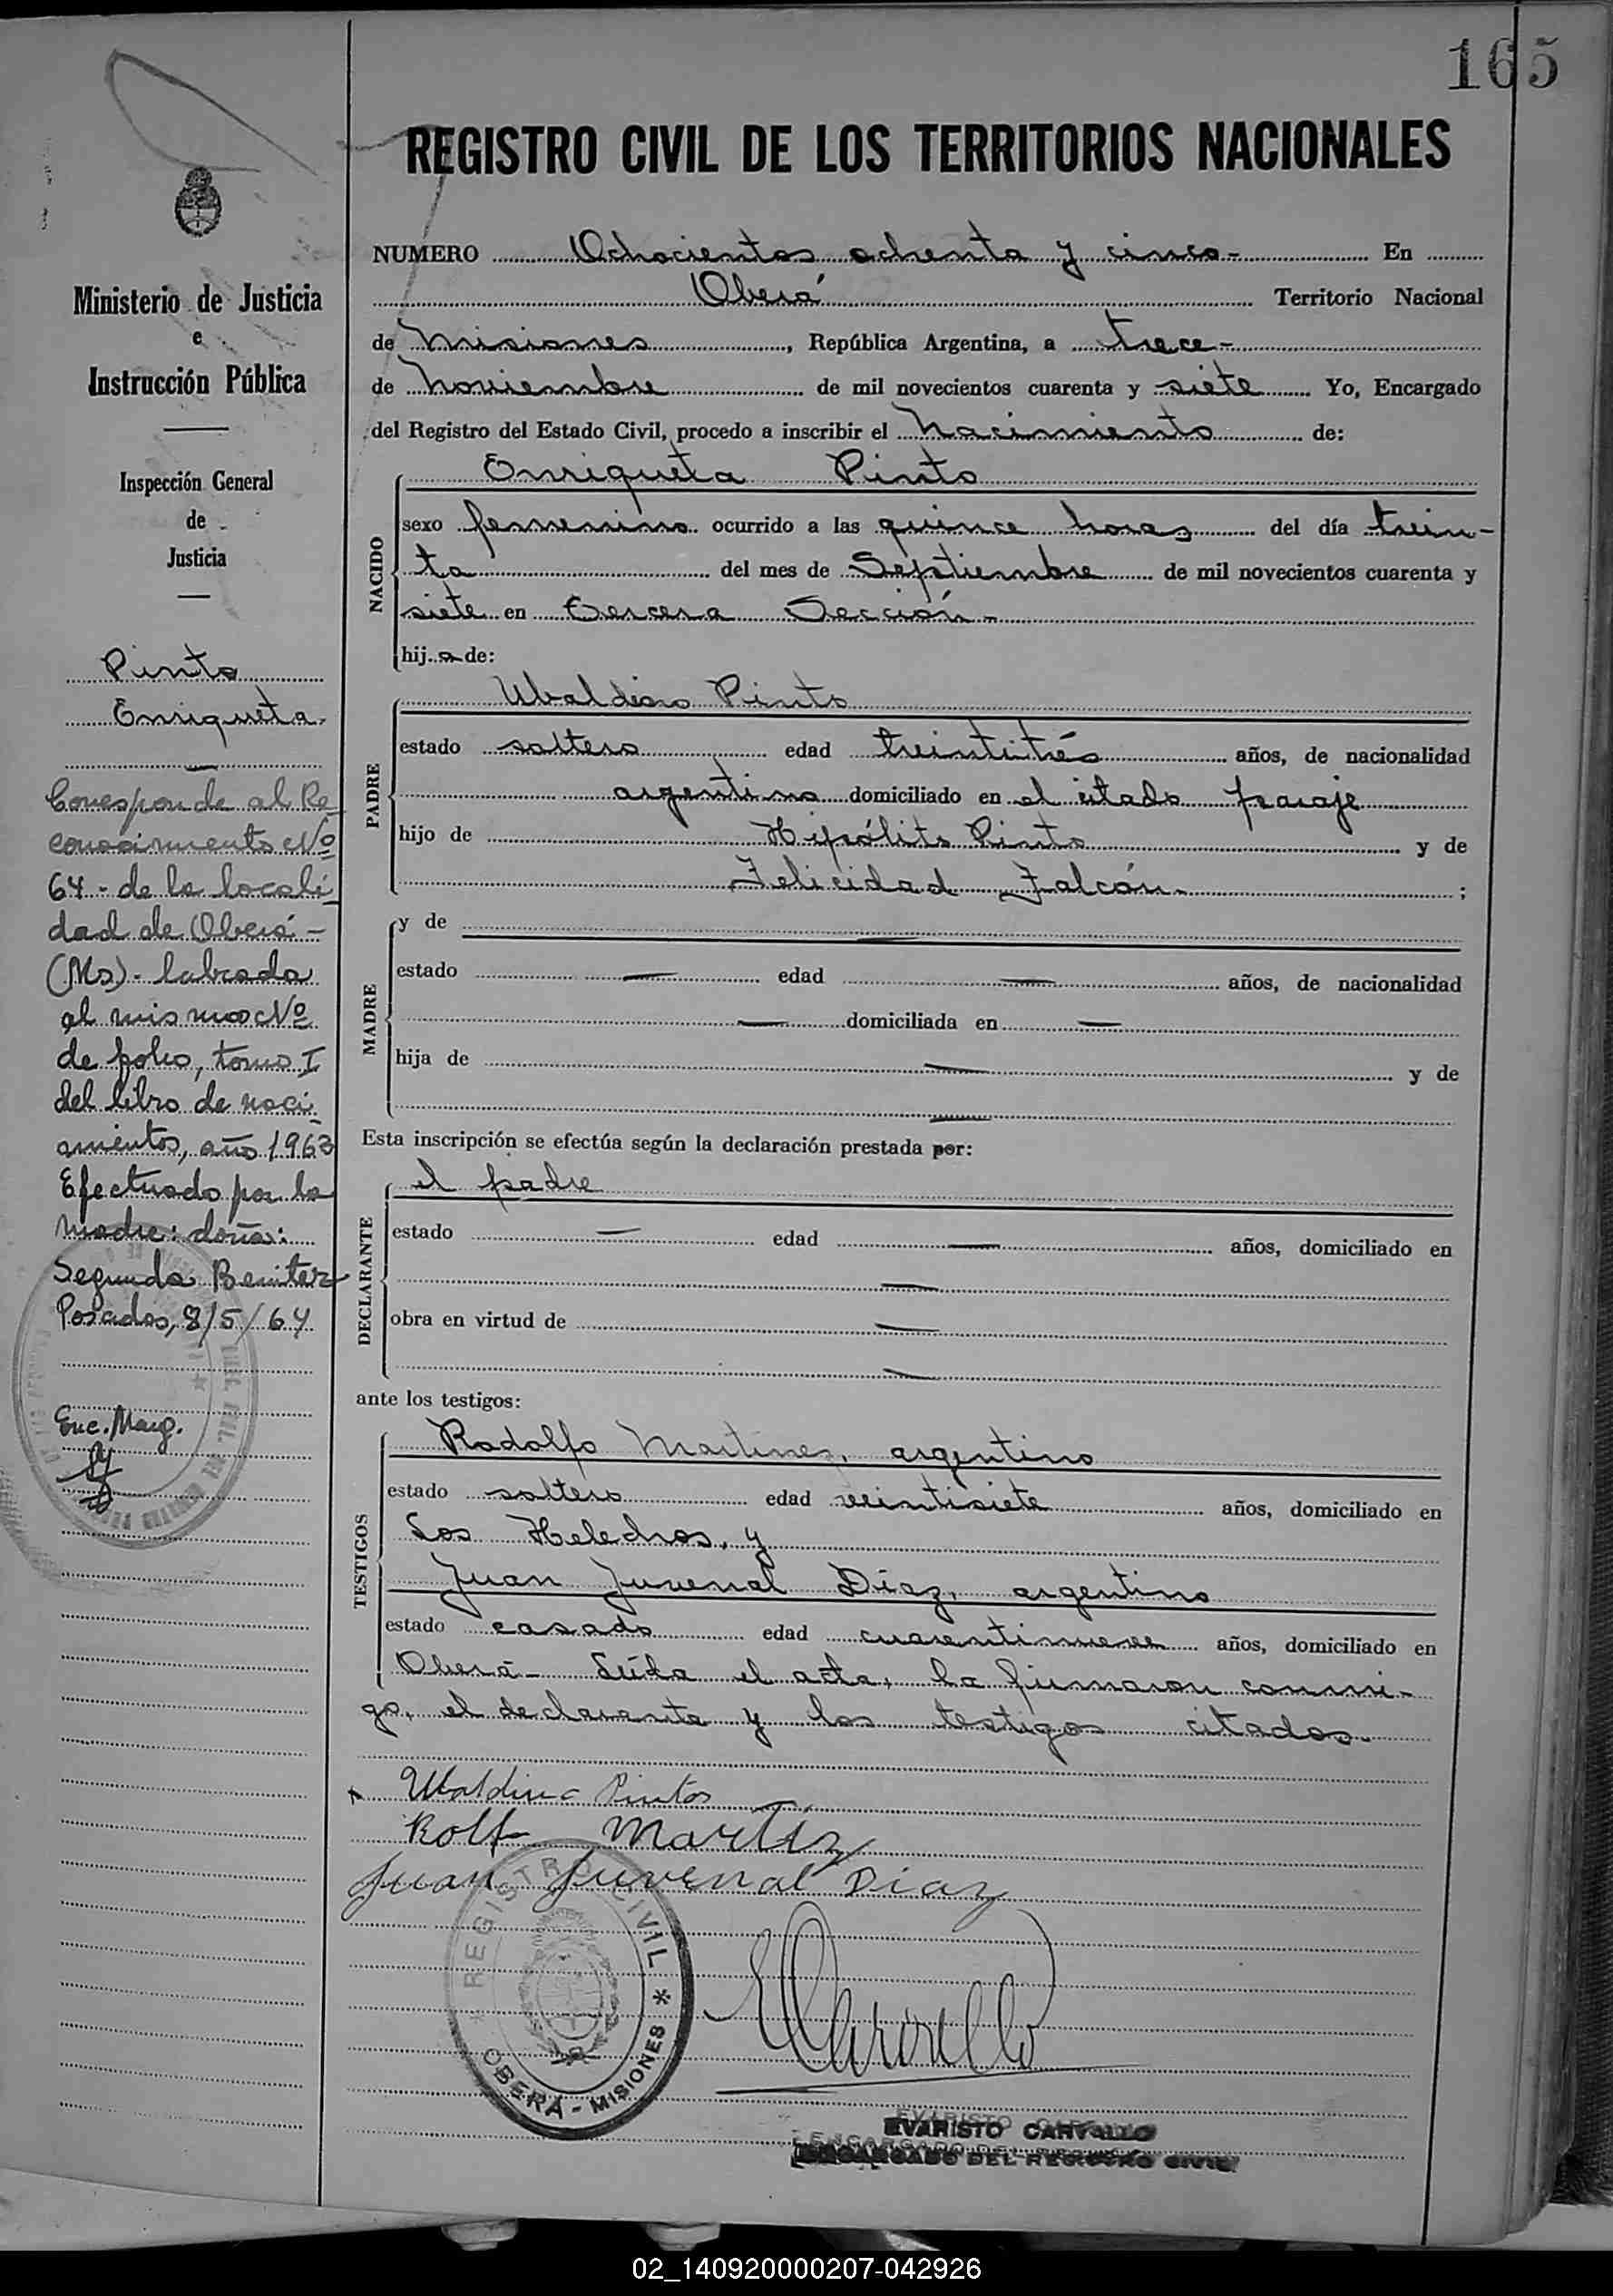 165
REGISTRO CIVIL DE LOS TERRITORIOS NACIONALES
Ministerio de Justicia
e
Instrucción Pública
Inspección General
de
Justicia
Pinto
Enriqueta.
Corresponde al Re
conocimiento Nº
64 - de la locali
dad de Oberá -
(Ms) - labrada
al mismo Nº
de folio, tomo I
del libro de naci
mientos, año 1963
Efectuado por la
madre: doña:
Segunda Benitez
Posadas, 8/5/64
Enc. Marg.
NUMERO Ochocientos ochenta y cinco - En
Oberá Territorio Nacional
de Misiones, República Argentina, a trece -
de Noviembre de mil novecientos cuarenta y siete Yo, Encargado
del Registro del Estado Civil, procedo a inscribir el Nacimiento de:
NACIDO
Enriqueta Pinto
sexo femenino ocurrido a las quince horas del día trein-
ta del mes de Septiembre de mil novecientos cuarenta y
siete en Tercera Sección -
hij a de:
PADRE
Ubaldino Pinto
estado soltero edad treintitrés años, de nacionalidad
argentina domiciliado en el citado paraje
hijo de Hipólito Pinto y de
Felicidad Falcón - ;
MADRE
y de —
estado — edad — años, de nacionalidad
— domiciliada en —
hija de — y de
—
Esta inscripción se efectúa según la declaración prestada por:
DECLARANTE
el padre
estado — edad — años, domiciliado en
—
obra en virtud de —
—
ante los testigos:
TESTIGOS
Rodolfo Martinez, argentino
estado soltero edad veintisiete años, domiciliado en
Los Helechos, y
Juan Juvenal Díaz, argentino
estado casado edad cuarentinueve años, domiciliado en
Oberá - Leída el acta, la firmaron conmi-
go, el declarante y los testigos citados.
Ubaldino Pintos
Rolf Martíz
Juan Juvenal Diaz
REGISTRO CIVIL
* OBERÁ - MISIONES *
ECarvallo
EVARISTO CARVALLO
ENCARGADO DEL REGISTRO CIVIL
02_140920000207-042926